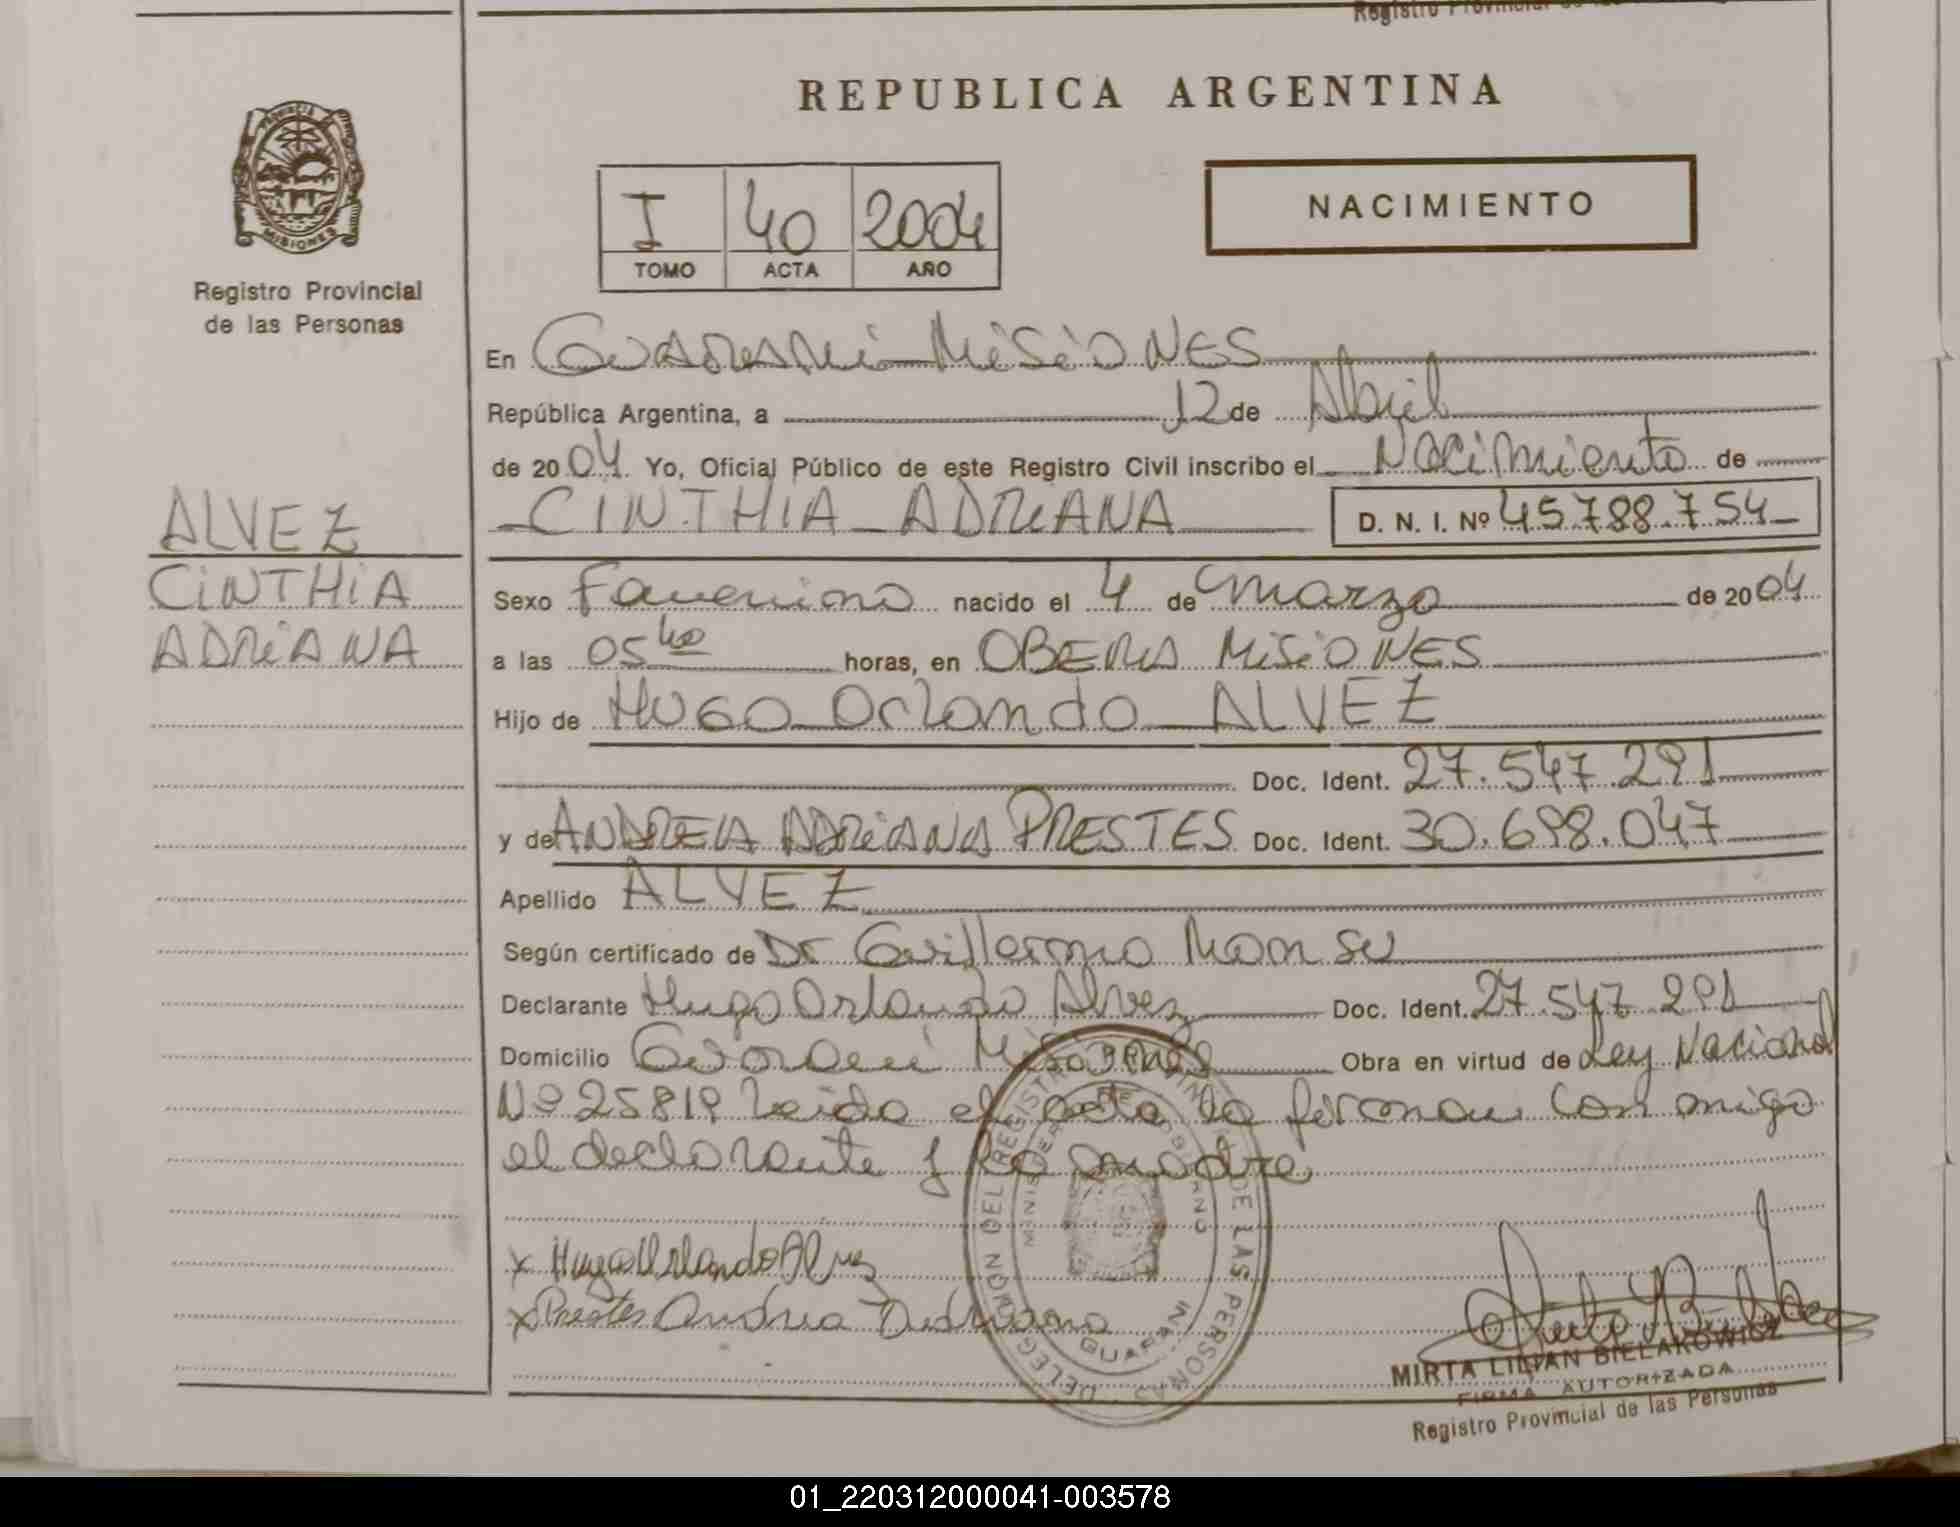 Registro Provincial de las
REPUBLICA ARGENTINA
PROVINCIA
MISIONES
Registro Provincial
de las Personas
I 40 2004
TOMO ACTA AÑO
NACIMIENTO
En GUARANI MISIONES
República Argentina, a 12 de Abril
de 2004 Yo, Oficial Público de este Registro Civil inscribo el Nacimiento de
CINTHIA ADRIANA D. N. I. Nº 45.788.754
ALVEZ
CINTHIA
ADRIANA
Sexo Femenino nacido el 4 de marzo de 2004
a las 05 40 horas, en OBERA MISIONES
Hijo de HUGO Orlando ALVEZ
Doc. Ident. 27.547.291
y de ANDREA ADRIANA PRESTES Doc. Ident. 30.698.047
Apellido ALVEZ
Según certificado de Dr Guillermo
Declarante Hugo Orlando Alvez Doc. Ident. 27.547.291
Domicilio Guarani Misiones Obra en virtud de Ley Nacional
Nº 25819 Leida el acta la firman con migo
el declarante y la madre
x Hugo Orlando Alvez
x Prestes Andrea Adriana
DELEGACION DEL REGISTRO PROVINCIAL DE LAS PERSONAS
MINISTERIO DE GOBIERNO
GUARANI
MIRTA LILIAN BIELAKOWICZ
FIRMA AUTORIZADA
Registro Provincial de las Personas
01_220312000041-003578